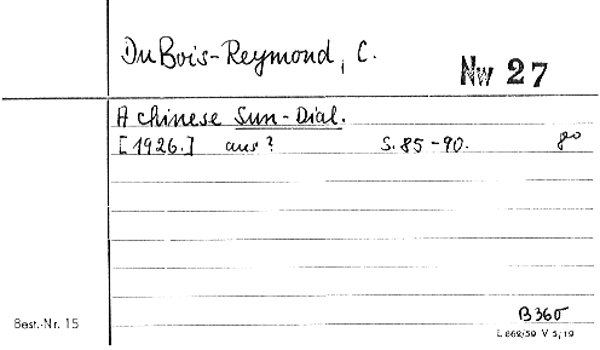 DuBois-Reymond, C.
Nw 27
A chinese Sun-Dial.
[1926.] aus? S. 85-90. 8°
B360
Best.-Nr. 15
L 662/59 V 5/19